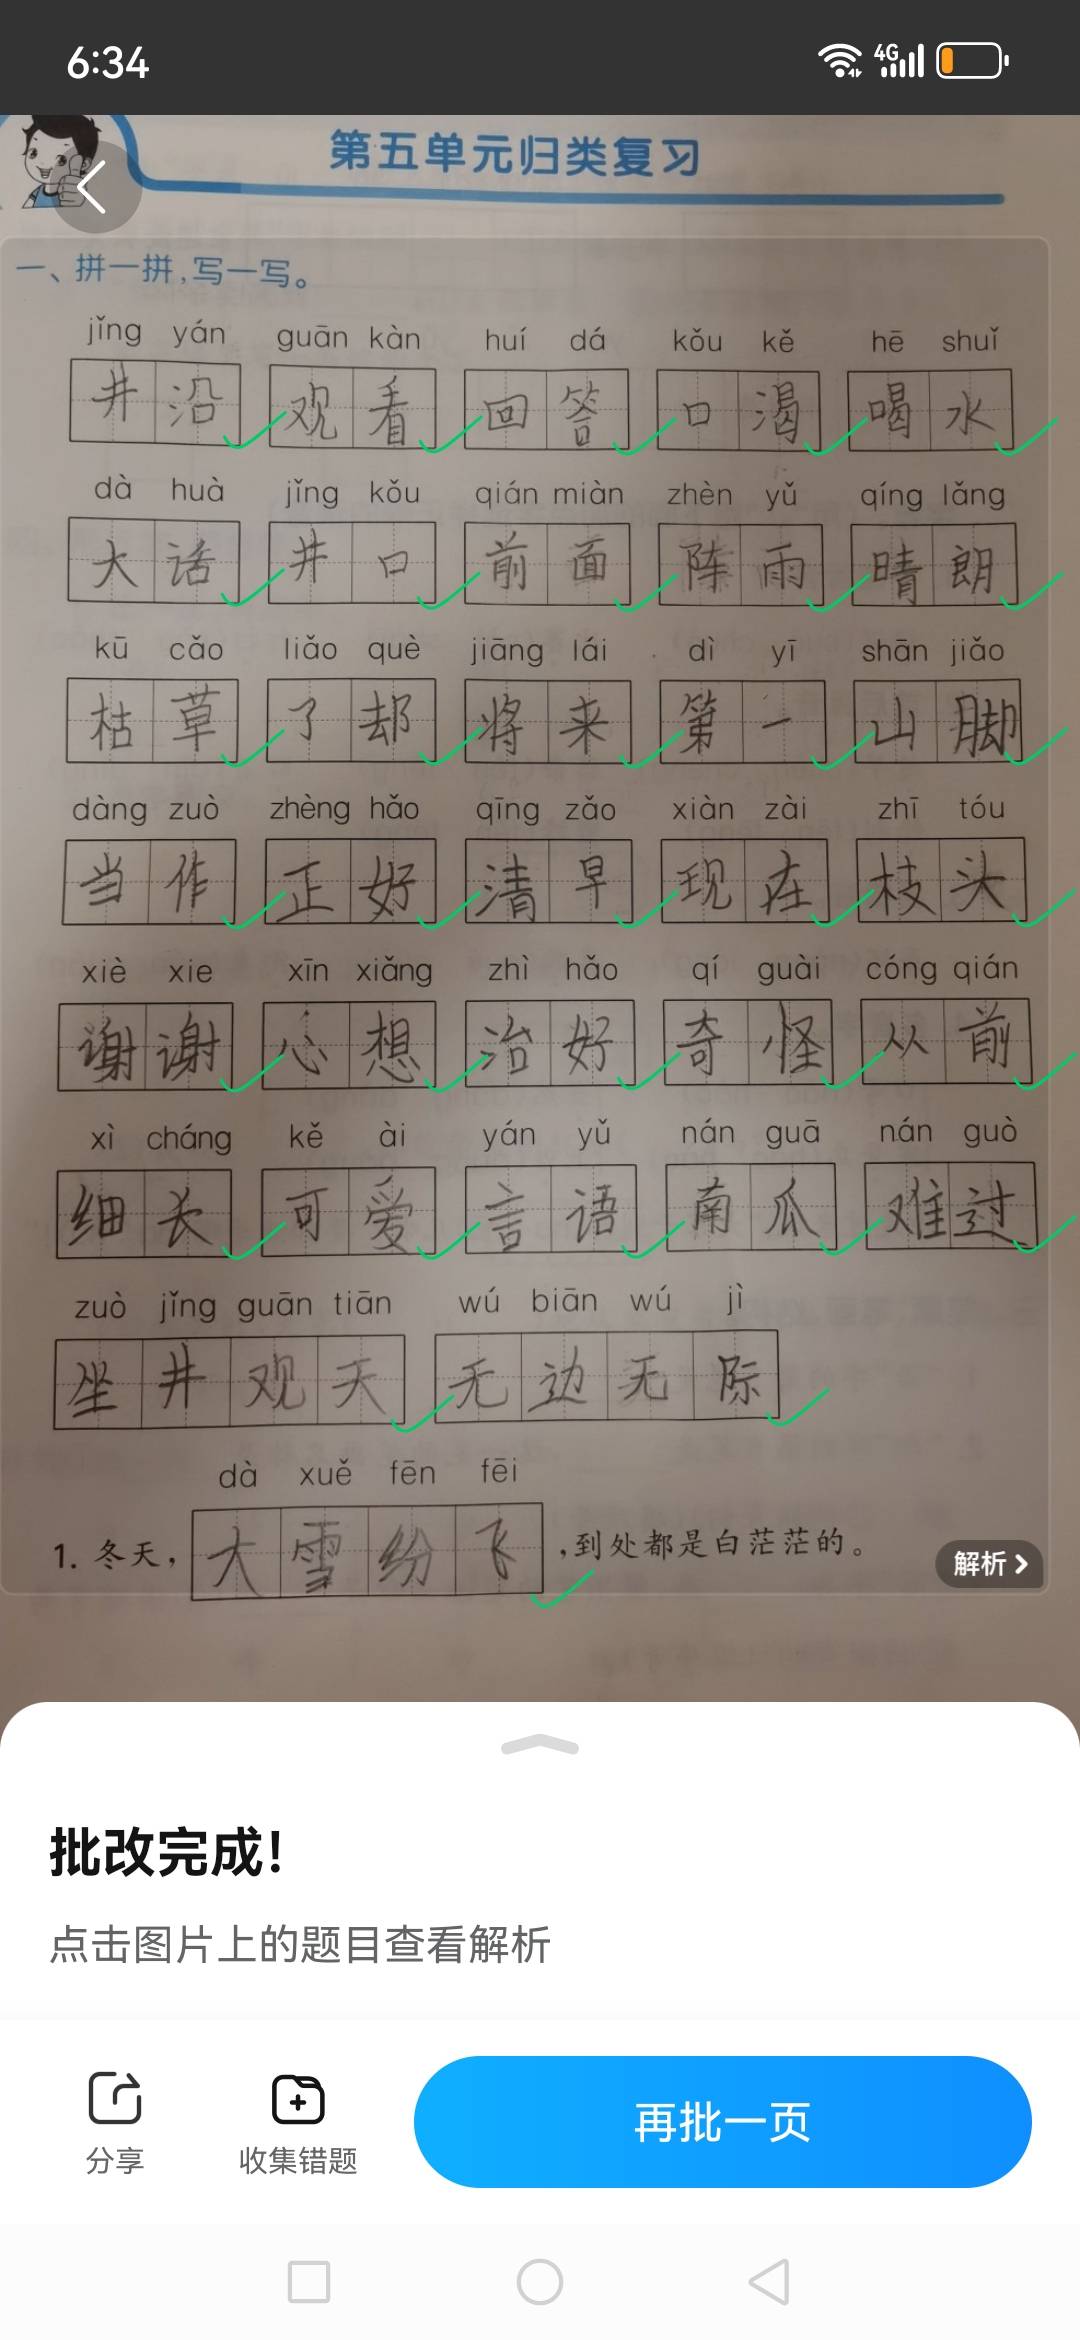 6:34
4G
第五单元归类复习
一、拼一拼,写一写。
jǐng yán guān kàn huí dá kǒu kě hē shuǐ
井沿 观看 回答 口渴 喝水
dà huà jǐng kǒu qián miàn zhèn yǔ qíng lǎng
大话 井口 前面 阵雨 晴朗
kū cǎo liǎo què jiāng lái dì yī shān jiǎo
枯草 了却 将来 第一 山脚
dàng zuò zhèng hǎo qīng zǎo xiàn zài zhī tóu
当作 正好 清早 现在 枝头
xiè xie xīn xiǎng zhì hǎo qí guài cóng qián
谢谢 心想 治好 奇怪 从前
xì cháng kě ài yán yǔ nán guā nán guò
细长 可爱 言语 南瓜 难过
zuò jǐng guān tiān wú biān wú jì
坐井观天 无边无际
dà xuě fēn fēi
1. 冬天,大雪纷飞,到处都是白茫茫的。
解析
批改完成!
点击图片上的题目查看解析
分享 收集错题 再批一页